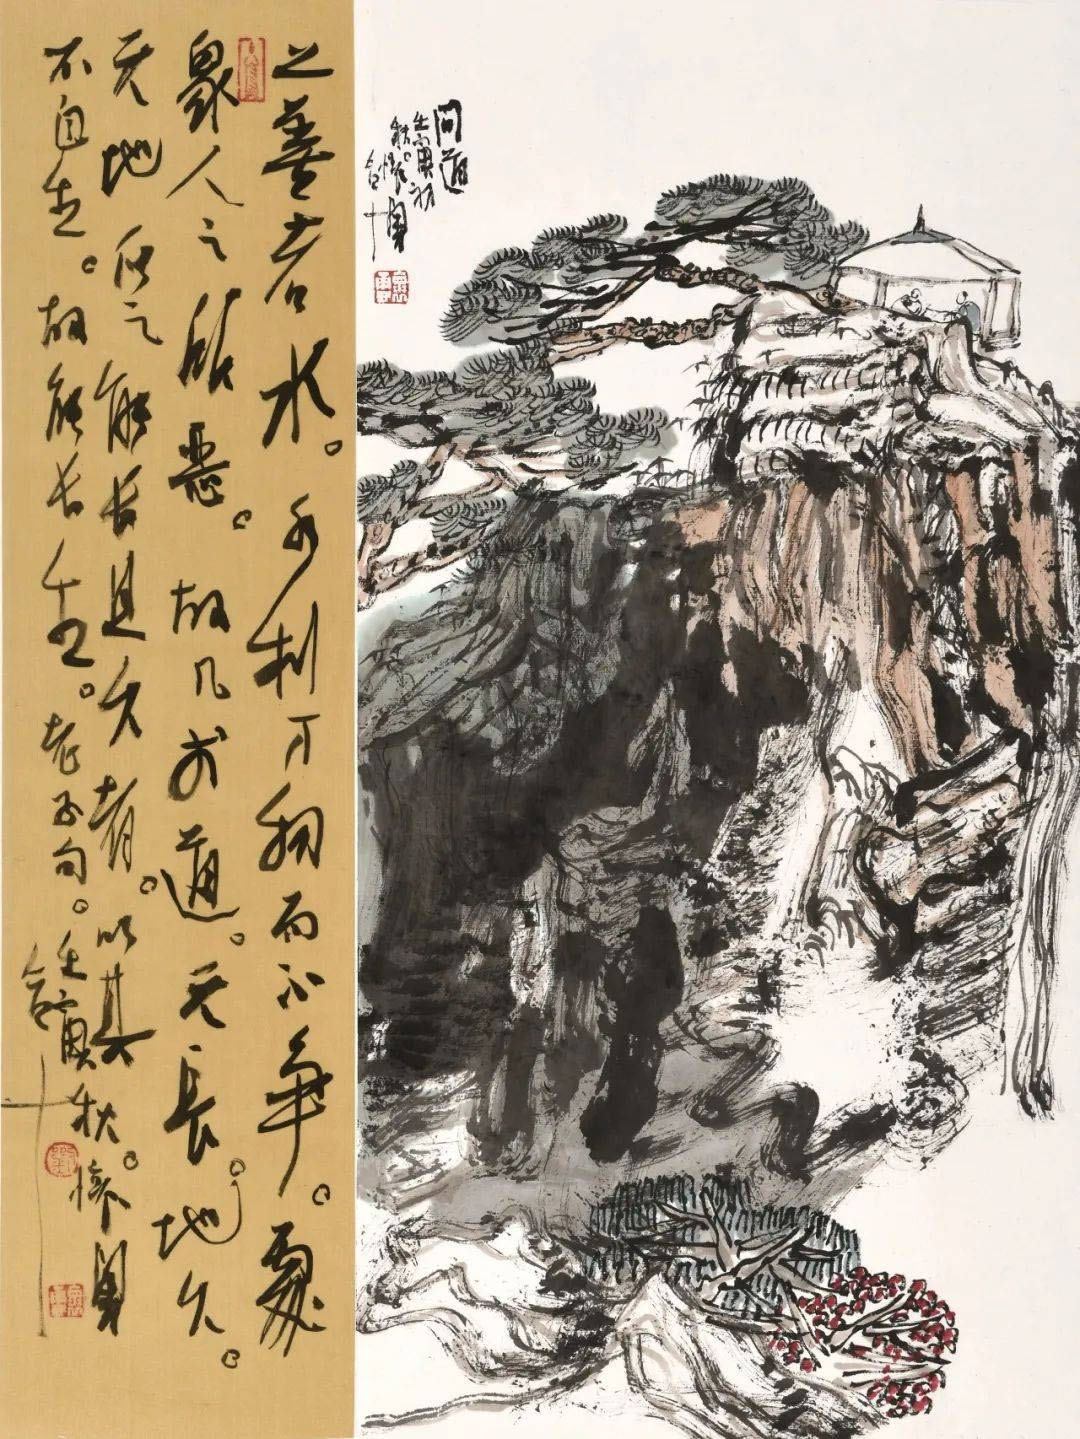 上善若水。水利万物而不争。處
眾人之所惡。故几於道。天長。地久。
天地所以能长且久者。以其
不自生。故能长生。老子句。壬寅秋。懷勇
问道
壬寅初
秋。懷勇